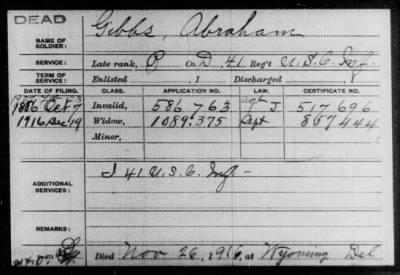 DEAD
NAME OF SOLDIER: Gibbs, Abraham
SERVICE: Late rank, P Co. D, 41 Reg't U.S.C. Inf.
TERM OF SERVICE: Enlisted , 1 Discharged , 1
DATE OF FILING. CLASS. APPLICATION NO. LAW. CERTIFICATE NO.
1886 Oct 7 Invalid, 586 763 J 517 696
1916 Dec 19 Widow, 1089.375 Sept 857444
Minor,
ADDITIONAL SERVICES: I 41 U.S.C. Inf -
REMARKS:
Died Nov 26, 1916, at Wyoming Del